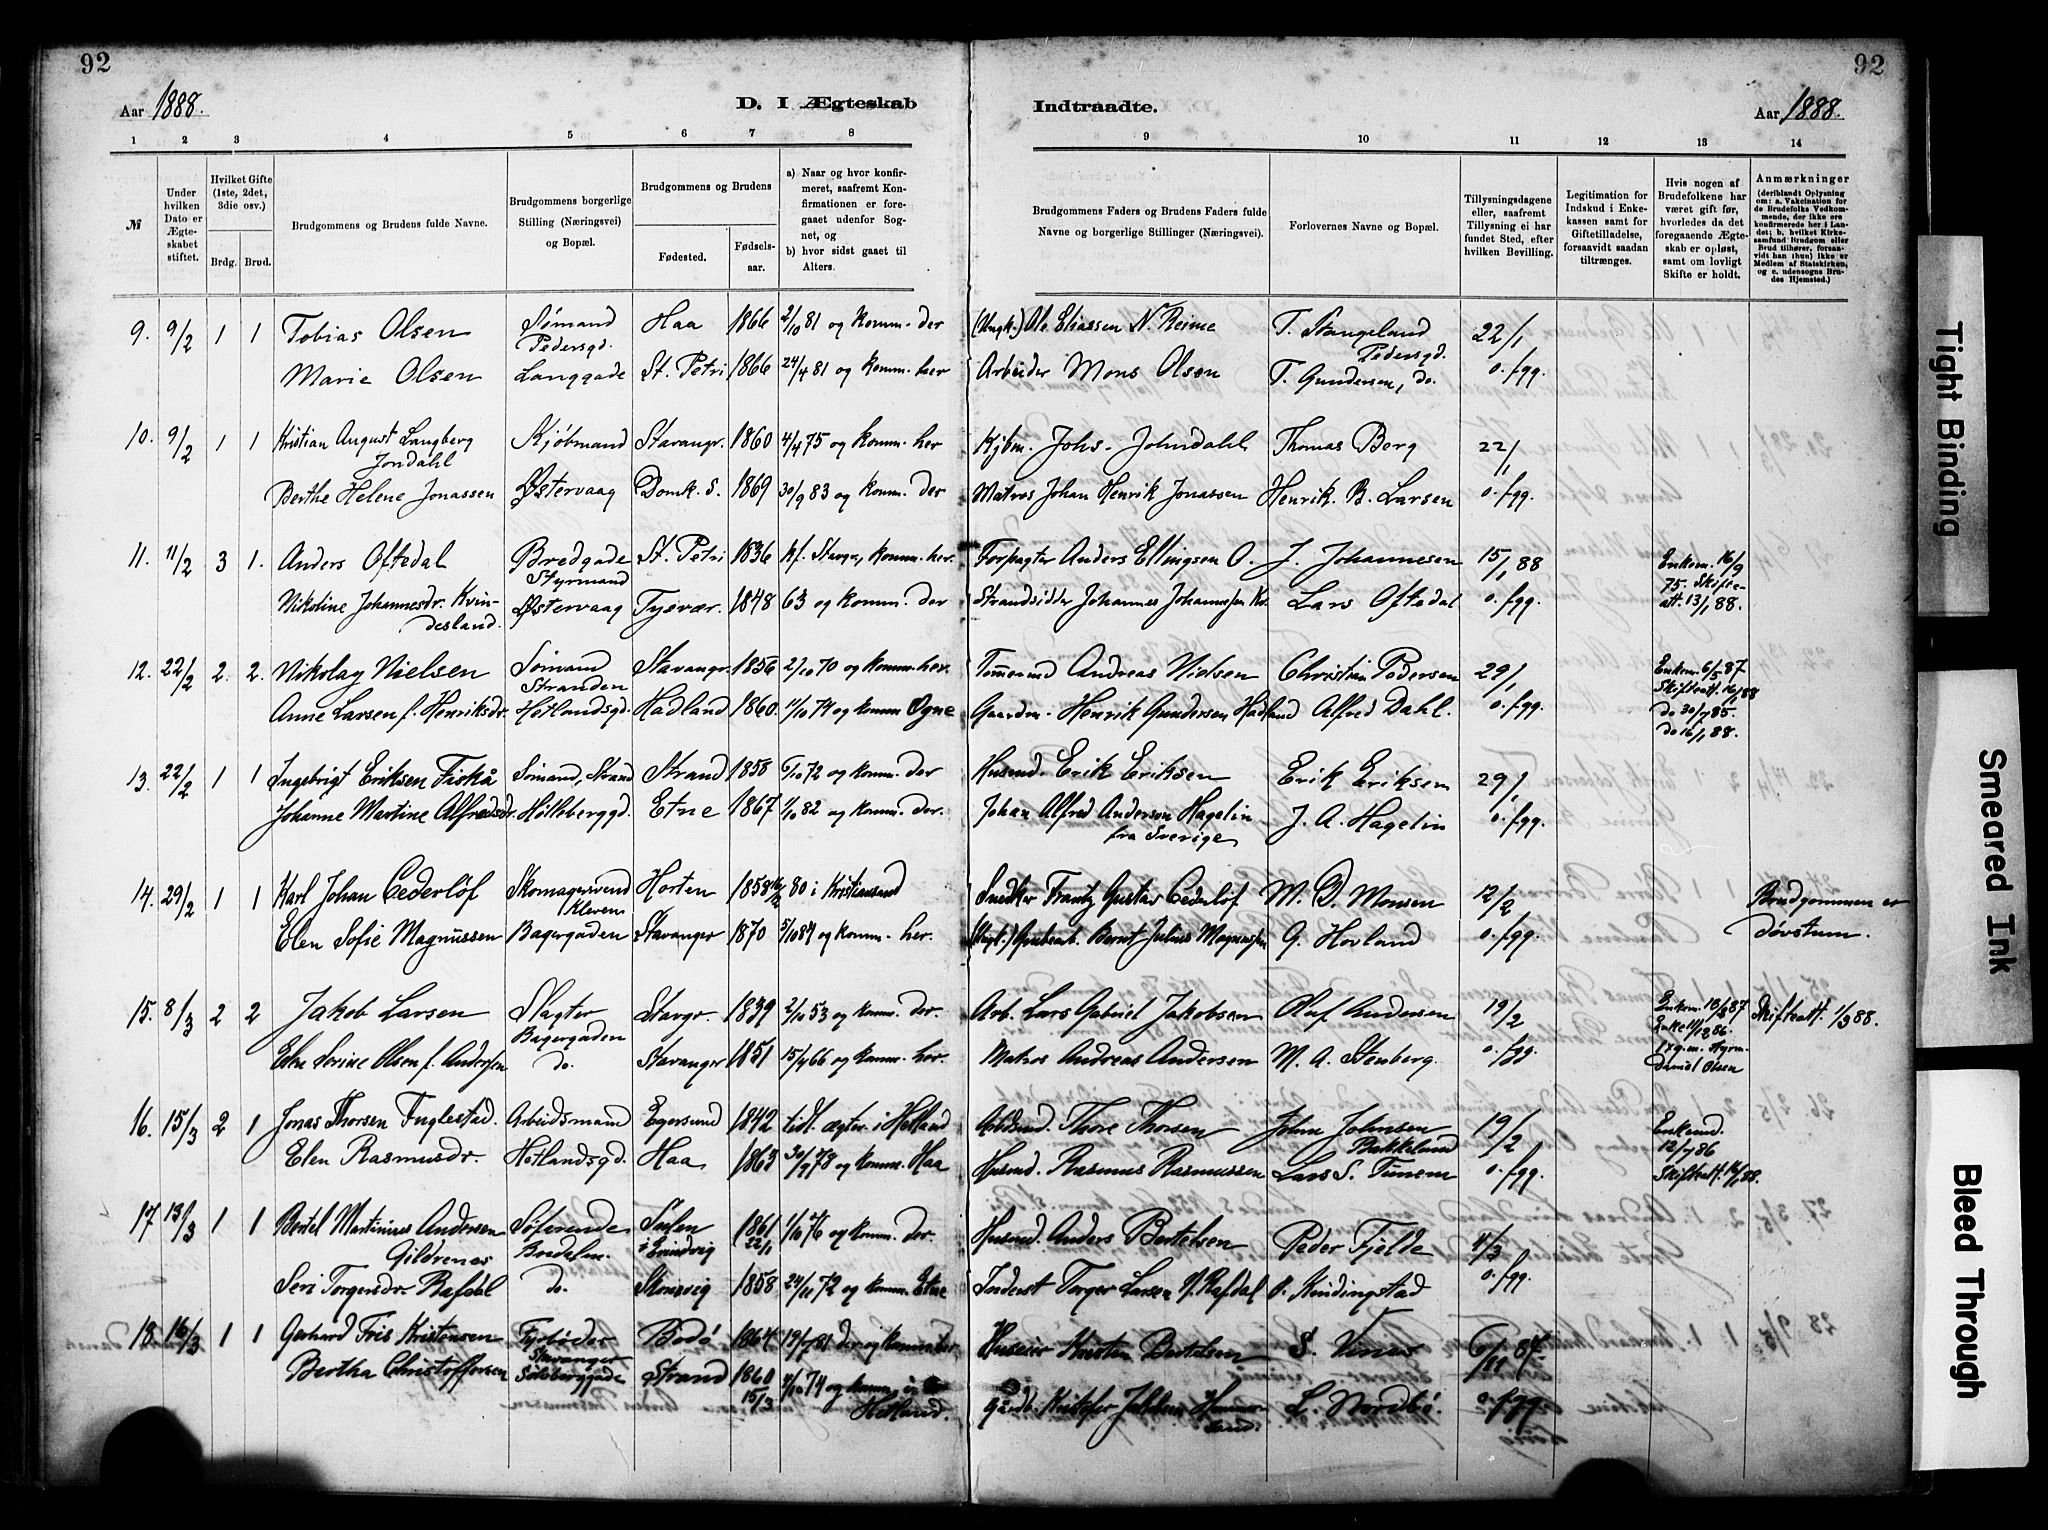 92
92
Aar 1888.
D. I Ægteskab
Indtraadte.
Aar 1888.
1 2 3 4 5 6 7 8 9 10 11 12 13 14
№
Under hvilken Dato er Ægteskabet stiftet.
Hvilket Gifte (1ste, 2det, 3die osv.)
Brdg. Brud.
Brudgommens og Brudens fulde Navne.
Brudgommens borgerlige Stilling (Næringsvei) og Bopæl.
Brudgommens og Brudens
Fødested.
Fødselsaar.
a) Naar og hvor konfirmeret, saafremt Konfirmationen er foregaaet udenfor Sognet, og
b) hvor sidst gaaet til Alters.
Brudgommens Faders og Brudens Faders fulde Navne og borgerlige Stillinger (Næringsvei).
Forlovernes Navne og Bopæl.
Tillysningsdagene eller, saafremt Tillysning ei har fundet Sted, efter hvilken Bevilling.
Legitimation for Indskud i Enkekassen samt for Giftetilladelse, forsaavidt saadan tiltrænges.
Hvis nogen af Brudefolkene har været gift før, hvorledes da det foregaaende Ægteskab er opløst, samt om lovligt Skifte er holdt.
Anmærkninger
(deriblandt Oplysning om: a. Vakcination for de Brudefolks Vedkommende, der ikke ere konfirmerede her i Landet; b. hvilket Kirkesamfund Brudgom eller Brud tilhører, forsaavidt han (hun) ikke er Medlem af Statskirken; og c. udensogns Brudes Hjemsted.)
9. 9/2 1 1 Tobias Olsen Sømand Pedersgd. Haa 1866 2/10 81 og komm. der (Ungk.) Ole Eliassen N. Reime T. Stangeland Pedersgd. 22/1
Marie Olsen Langgade St. Petri 1866 24/4 81 og komm. her Arbeider Mons Olsen T. Gundersen, do. o. fgg.
10. 9/2 1 1 Kristian August Langberg Jondahl Skjøbmand Stavangr. 1860 4/4 75 og komm. her Kjbm. Johs. Johndahl Thomas Berg 22/1
Berthe Helene Jonassen Østervaag Domk. S. 1869 30/9 83 og komm. der Matros Johan Henrik Jonassen Henrik B. Larsen o. fgg.
11. 11/2 3 1. Anders Oftedal Bredgade Styrmand St. Petri 1836 kf. Stangr, komm. her. Forpagter Anders Ellingsen O. J. Johannesen 15/1 88 Enkem. 16/9 75. Skifteatt. 13/1 88.
Nikoline Johannesdr. Kvindesland. Østervaag Tysvær. 1848 63 og komm. der Strandsidder Johannes Johannesen Kv. Lars Oftedal o. fgg.
12. 22/2 2. 2. Nikolay Nielsen Sømand Stranden Stavangr. 1856 2/10 70 og komm. her. Tømmermd Andreas Nielsen Christian Pedersen 29/1 Enkem. 6/5 87 Skifteatt. 16/1 88
Anne Larsen f. Henriksdr. Hetlandsgd. Hadland 1860. 11/10 74 og komm Ogne Gaardm. Henrik Gundersen Hadland Alfred Dahl. o. fgg. do 30/7 85. do 16/1 88.
13. 22/2 1 1 Ingebrigt Eriksen Fiskå Sømand, Strand Strand 1858 6/10 72 og komm. der Husmd. Erik Eriksen Erik Eriksen 29/1
Johanne Martine Alfredsdr. Hølleberggd. Etne 1867 1/10 82 og komm. der. Johan Alfred Anderson Hagelin fra Sverige J. A. Hagelin o. fgg.
14. 29/2 1 1 Karl Johan Cederlöf Skomagersvend Kleven Horten 1858 16/2 80 i Kristiansand Snedker Frantz Gustav Cederlöf M. D. Monsen 12/2 Brudgommen er døvstum.
Elen Sofie Magnüssen Bagergaden Stavanger 1870 5/10 84 og komm. her. Bernt Julius Magnussen G. Hovland o. fgg.
15. 8/3 2 2 Jakob Larsen Slagter Bagergaden Stavgr. 1839 2/10 53 og komm. der. Arb. Lars Gabriel Jakobsen Oluf Andersen 19/2 Skifteatt. 1/3 88.
Elen Serine Olsen f. Andersen do. Stavanger 1851 15/4 66 og komm. her. Matros Andreas Andersen M. A. Stenberg. o. fgg. Daniel Olsen
16. 15/3 2 1 Jonas Thorsen Fuglestad. Arbeidsmand Egersund 1842 tidl. ægtev. i Hetland Arbdsmd. Thore Thorsen John Johnsen Bakkeland 19/2 Enkemd. 12/7 86
Elen Rasmusdr. Hetlandsgd. Haa 1863 30/9 78 og komm. Haa Husmd. Rasmus Rasmussen Lars S. Tunem o. fgg.
17 13/3 1 1 Bertel Martinius Andersen Gildrenes Søfarende Bredalen. Solen i Evindvig 1861 22/1 1/10 76 og komm. der Husmd. Anders Bertelsen Peder Fjelde 4/3
Seri Torgersdr. Rafdal do. Skonevig 1858 24/10 72 og komm. Etne Inderst Torger Larsen N. Rafdal Kindingstad o. fgg.
18. 16/3 1 1 Gerhard Friis Kristensen Fyrbøder Stavanger Bodö 1864 19/7 81 der og komm. her Huseier Kristen Bertelsen S. Vines
Bertha Christoffersen Sølvberggade Strand 1860 15/3 4/10 74 og komm. i Hetland. L. Nordbö. o. fgg.
Tight Binding
Smeared Ink
Bleed Through